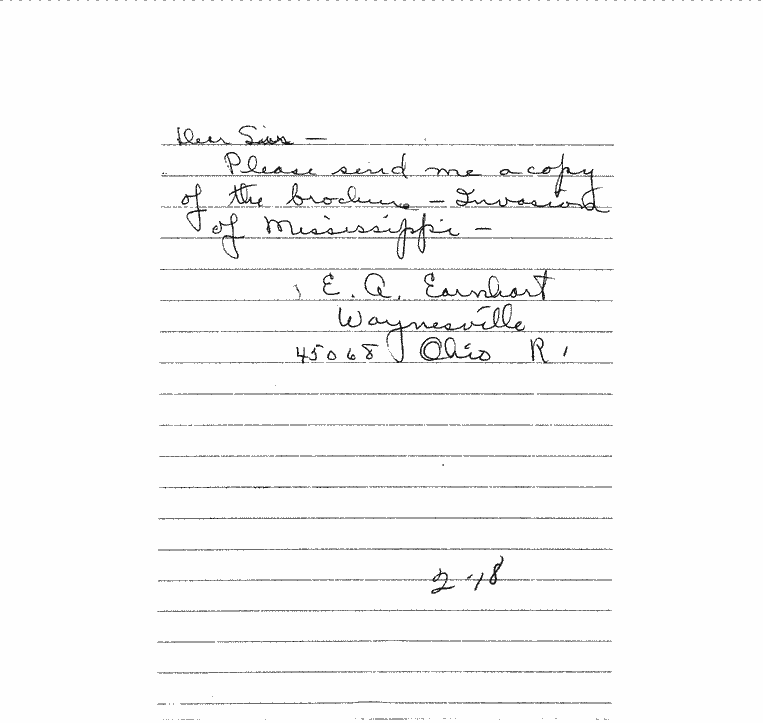 Dear Sirs —
Please send me a copy
of the brochure — Invasion
of Mississippi —
E. A. Earnhart
Waynesville
45068 Ohio R 1
2-18